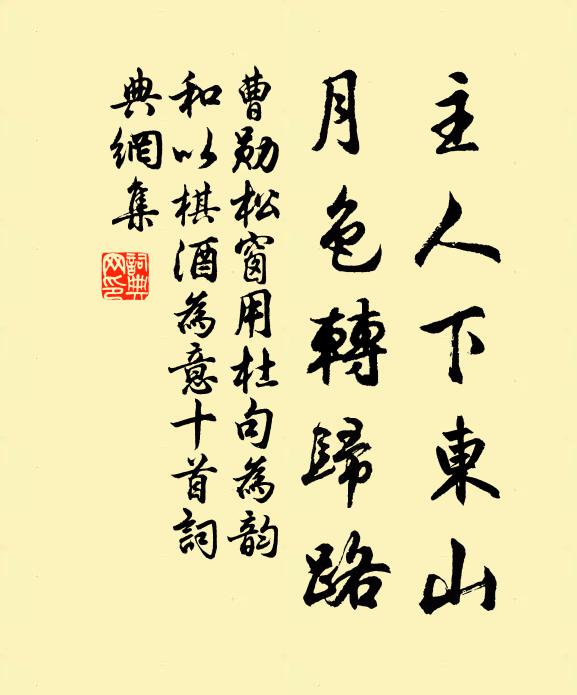 主人下東山
月色轉歸路
曹勋松窗用杜句為韵
和以棋酒為意十首詞
典網集
詞典網印